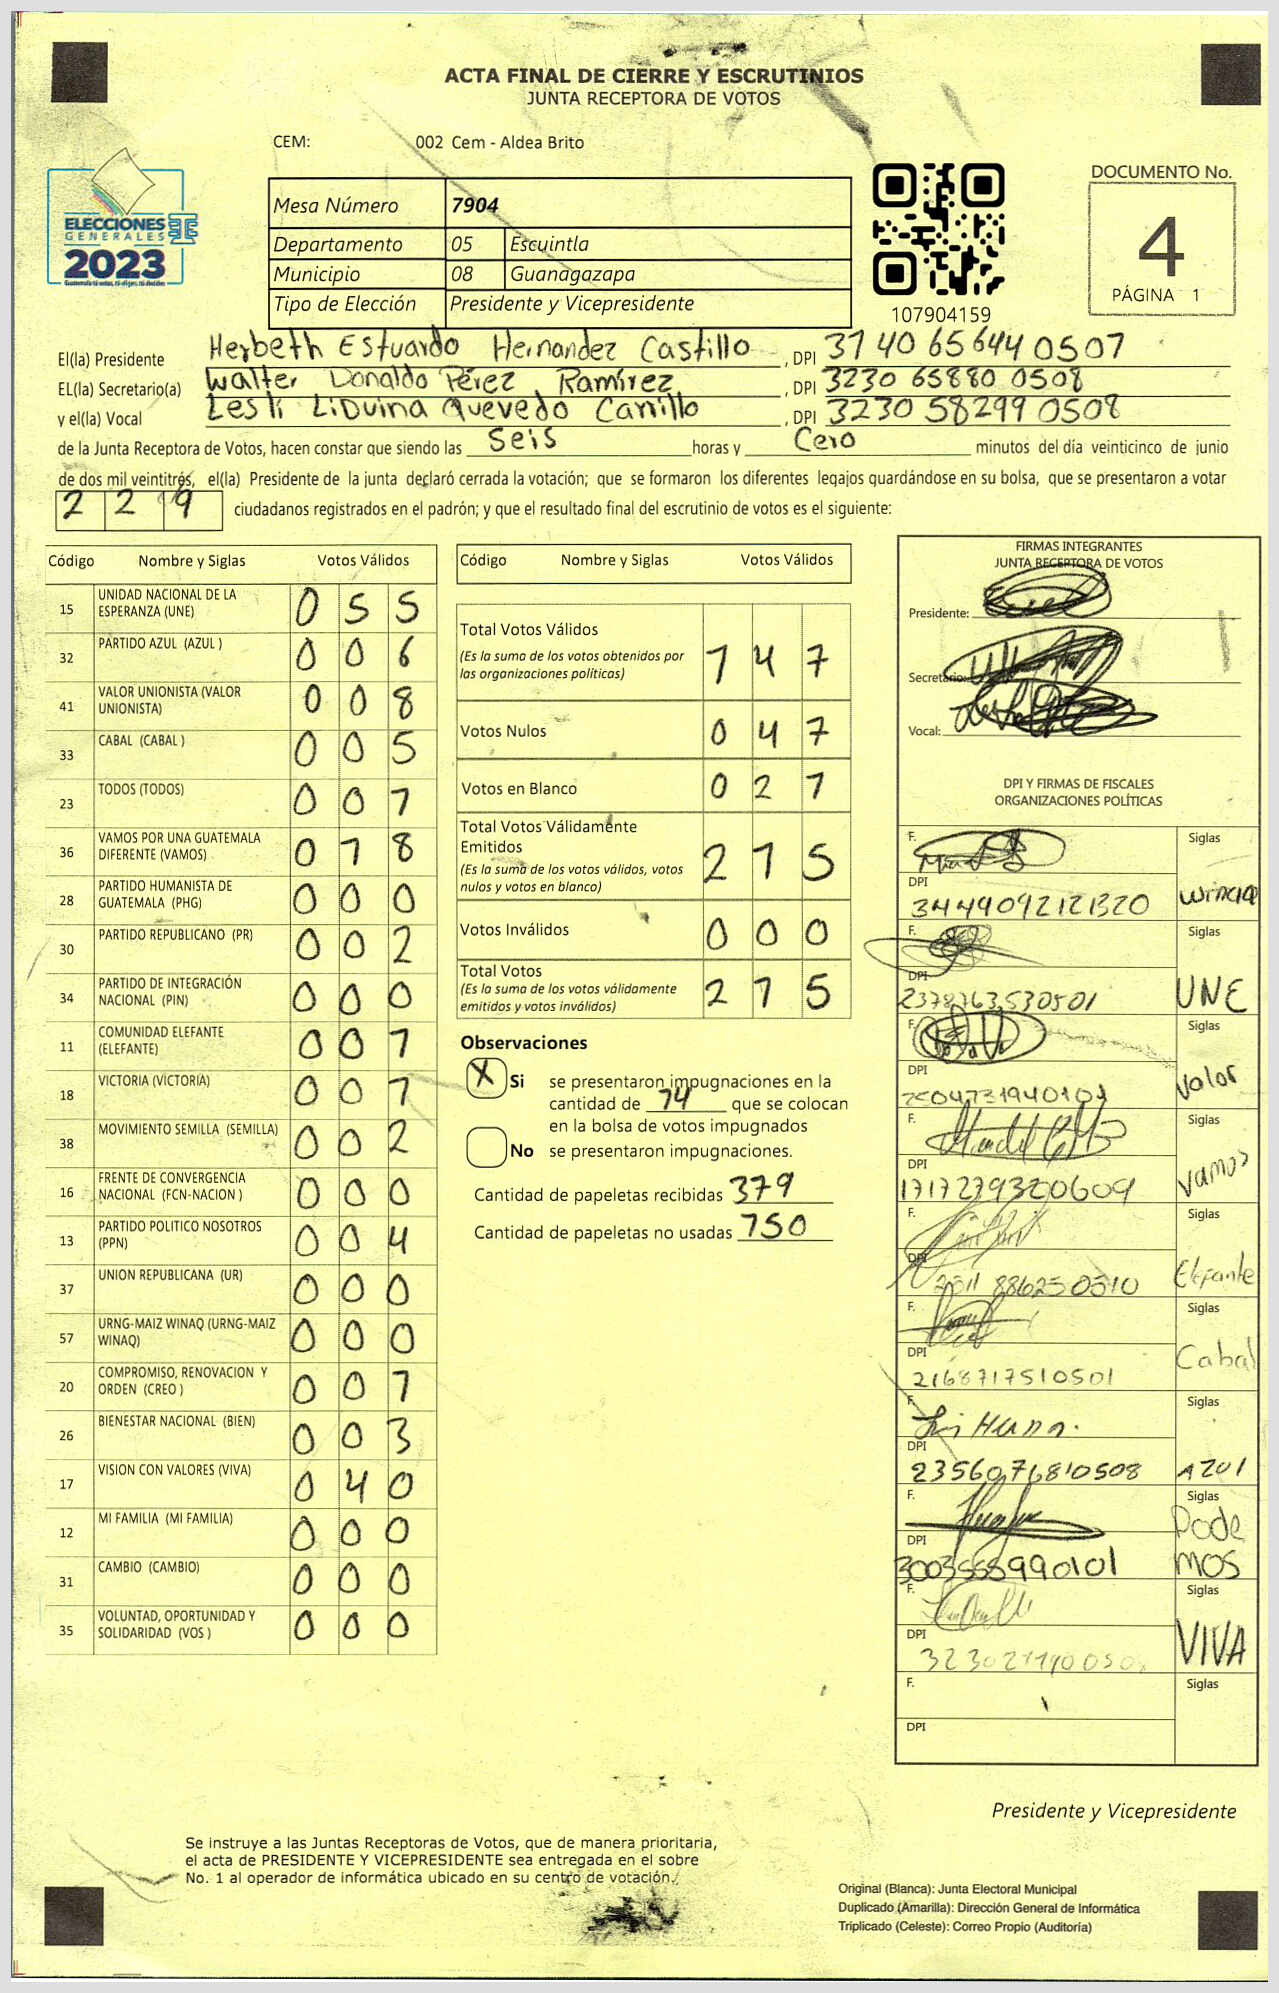 ACTA FINAL DE CIERRE Y ESCRUTINIOS
JUNTA RECEPTORA DE VOTOS
CEM: 002 Cem - Aldea Brito
ELECCIONES
GENERALES
2023
Mesa Número 7904
Departamento 05 Escuintla
Municipio 08 Guanagazapa
Tipo de Elección Presidente y Vicepresidente
107904159
DOCUMENTO No.
4
PÁGINA 1
El(la) Presidente Herbeth Estuardo Hernandez Castillo, DPI 3140 65644 0507
EL(la) Secretario(a) Walter Donaldo Pérez Ramírez, DPI 3230 65880 0508
y el(la) Vocal Lesli Liduina Quevedo Carrillo, DPI 3230 58299 0508
de la Junta Receptora de Votos, hacen constar que siendo las Seis horas y Cero minutos del día veinticinco de junio
de dos mil veintitrés, el(la) Presidente de la junta declaró cerrada la votación; que se formaron los diferentes legajos guardándose en su bolsa, que se presentaron a votar
229 ciudadanos registrados en el padrón; y que el resultado final del escrutinio de votos es el siguiente:
Código Nombre y Siglas Votos Válidos
15 UNIDAD NACIONAL DE LA
ESPERANZA (UNE) 055
32 PARTIDO AZUL (AZUL ) 006
41 VALOR UNIONISTA (VALOR
UNIONISTA) 008
33 CABAL (CABAL ) 005
23 TODOS (TODOS) 001
36 VAMOS POR UNA GUATEMALA
DIFERENTE (VAMOS) 018
28 PARTIDO HUMANISTA DE
GUATEMALA (PHG) 000
30 PARTIDO REPUBLICANO (PR) 002
34 PARTIDO DE INTEGRACIÓN
NACIONAL (PIN) 000
11 COMUNIDAD ELEFANTE
(ELEFANTE) 001
18 VICTORIA (VICTORIA) 001
38 MOVIMIENTO SEMILLA (SEMILLA) 002
16 FRENTE DE CONVERGENCIA
NACIONAL (FCN-NACION ) 000
13 PARTIDO POLITICO NOSOTROS
(PPN) 004
37 UNION REPUBLICANA (UR) 000
57 URNG-MAIZ WINAQ (URNG-MAIZ
WINAQ) 000
20 COMPROMISO, RENOVACION Y
ORDEN (CREO ) 001
26 BIENESTAR NACIONAL (BIEN) 003
17 VISION CON VALORES (VIVA) 040
12 MI FAMILIA (MI FAMILIA) 000
31 CAMBIO (CAMBIO) 000
35 VOLUNTAD, OPORTUNIDAD Y
SOLIDARIDAD (VOS ) 000
Código Nombre y Siglas Votos Válidos
Total Votos Válidos
(Es la suma de los votos obtenidos por
las organizaciones políticas) 147
Votos Nulos 047
Votos en Blanco 021
Total Votos Válidamente
Emitidos
(Es la suma de los votos válidos, votos
nulos y votos en blanco) 215
Votos Inválidos 000
Total Votos
(Es la suma de los votos válidamente
emitidos y votos inválidos) 215
Observaciones
X Si se presentaron impugnaciones en la
cantidad de 14 que se colocan
en la bolsa de votos impugnados
No se presentaron impugnaciones.
Cantidad de papeletas recibidas 379
Cantidad de papeletas no usadas 150
FIRMAS INTEGRANTES
JUNTA RECEPTORA DE VOTOS
Presidente:
Secretario:
Vocal:
DPI Y FIRMAS DE FISCALES
ORGANIZACIONES POLÍTICAS
F. Siglas
DPI
3449092121320
F. Siglas
DPI UNE
2378763530501
F. Siglas
DPI Valor
F. Siglas
DPI Vamos
1717279320609
F. Siglas
DPI Elefante
2511 886250510
F. Siglas
DPI Cabal
2168717510501
F. Siglas
DPI
2356076810508 AZUl
F. Siglas
DPI Pode
3003555990101 mos
F. Siglas
DPI VIVA
F. Siglas
DPI
Presidente y Vicepresidente
Se instruye a las Juntas Receptoras de Votos, que de manera prioritaria,
el acta de PRESIDENTE Y VICEPRESIDENTE sea entregada en el sobre
No. 1 al operador de informática ubicado en su centro de votación.
Original (Blanca): Junta Electoral Municipal
Duplicado (Amarilla): Dirección General de Informática
Triplicado (Celeste): Correo Propio (Auditoría)